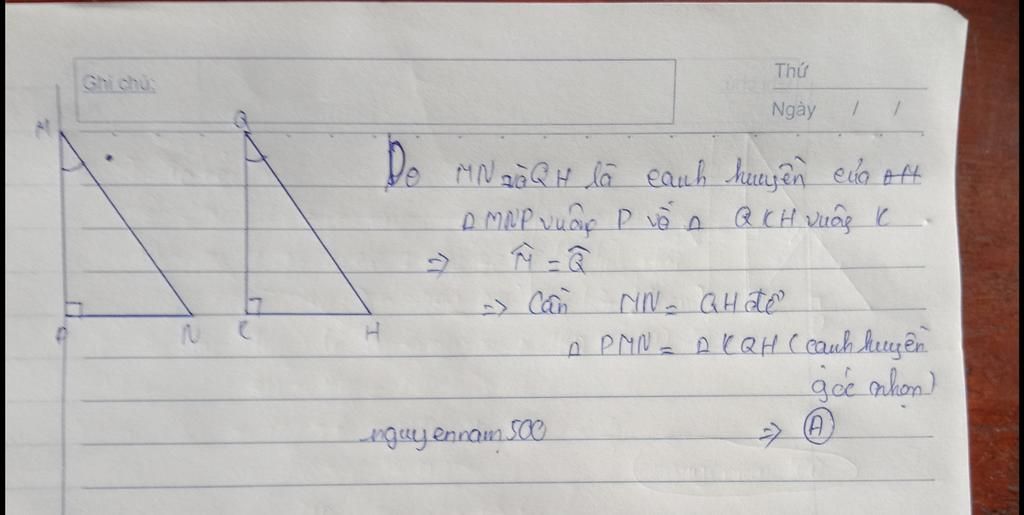 Ghi chú:
Thứ
Ngày / /
M Q
Do MN và QH là cạnh huyền của
Δ MNP vuông P và Δ QKH vuông K
=> M̂ = Q̂
=> Cần MN = QH để
Δ PMN = Δ KQH (cạnh huyền
góc nhọn)
P N K H
nguyennam500 => A